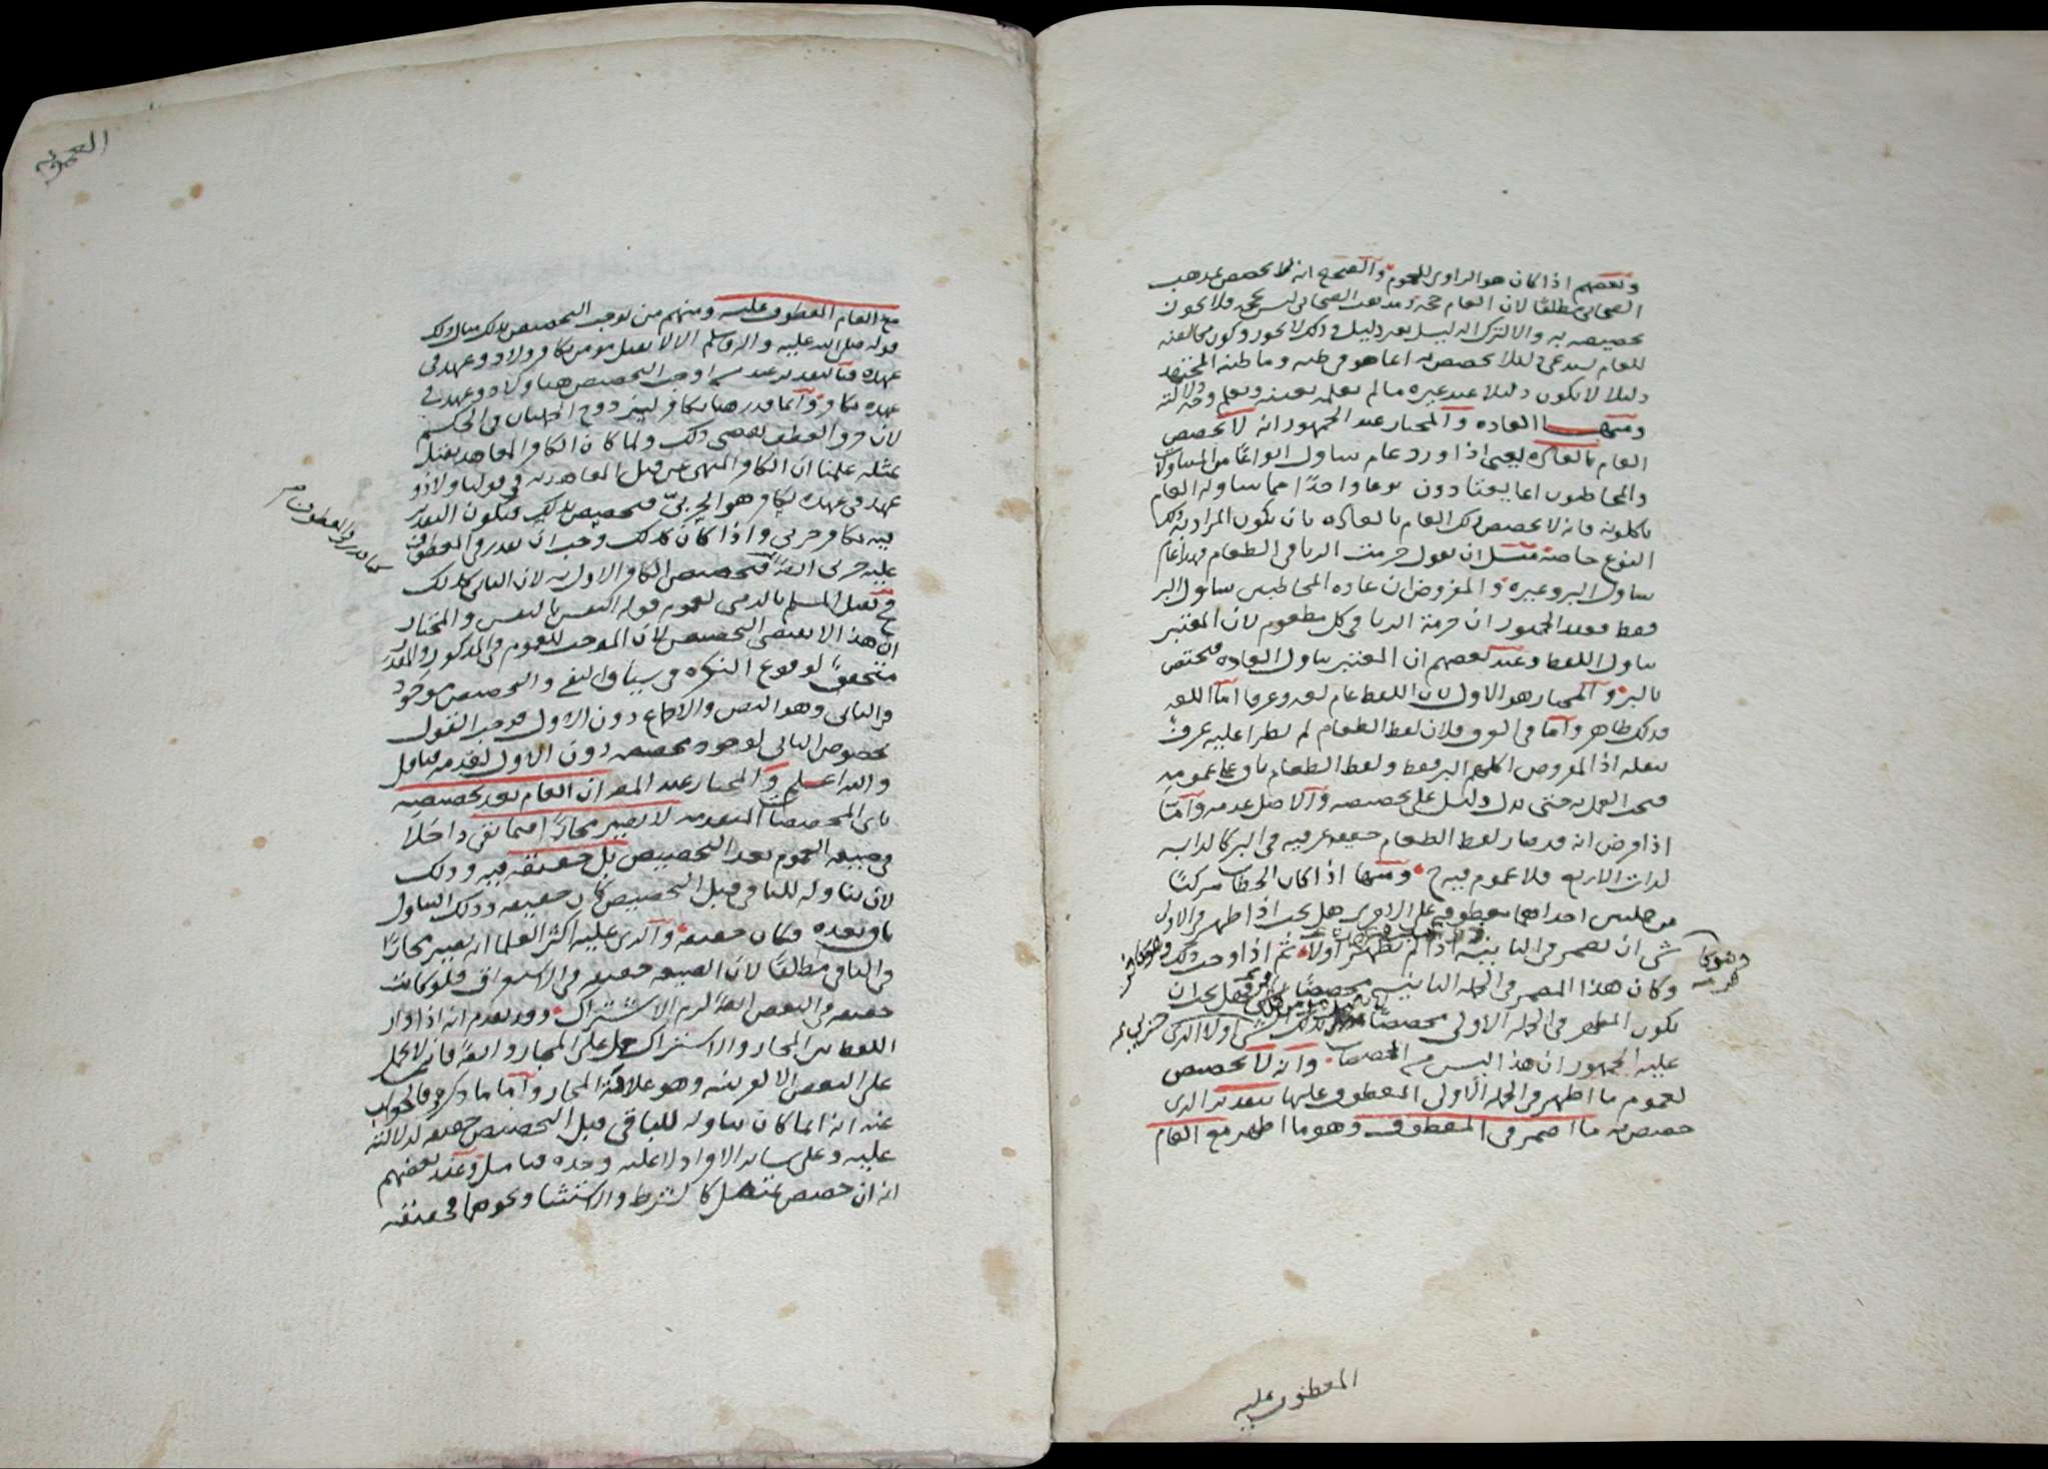 وبعضهم اذا كان هو الراوي للعموم والصحيح انه لا يخصص بمذهب
الصحابي مطلقا لان العام حجة ومذهب الصحابي ليس بحجة فلا يجوز
تخصيصه به والا لترك الدليل بغير دليل وذلك لا يجوز وكون مخالفته
للعام يستدعي دليلا يخصص به انما هو في ظنه وما ظنه المجتهد
دليلا لا يكون دليلا عند غيره ما لم يعلمه بعينه ويعلم وجه دلالته
ومنها العادة والمختار عند الجمهور انه لا يخصص
العام بالعادة يعني اذا ورد عام يتناول انواعا من المتناولات
والمخاطبون انما يعتادون نوعا واحدا مما يتناوله العام
ياكلونه فانه لا يخصص ذلك العام بالعادة بان يكون المراد به ذلك
النوع خاصة مثل ان يقول حرمت الربا في الطعام فهذا عام
يتناول البر وغيره والمفروض ان عادة المخاطبين تناول البر
فقط فعند الجمهور ان حرمة الربا في كل مطعوم لان المعتبر
تناول اللفظ وعند بعضهم ان المعتبر تناول العادة فيختص
بالبر والمختار هو الاول لان اللفظ عام لغة وعرفا اما اللغة
فذلك ظاهر واما في العرف فلان لفظ الطعام لم يطرا عليه عرف
ينقله اذ المفروض اكلهم البر فقط ولفظ الطعام باق على عمومه
فيجب العمل به حتى يدل دليل على تخصيصه والاصل عدمه واما
اذا فرض انه قد صار لفظ الطعام حقيقة عرفية في البر كالدابة
لذات الاربع فلا عموم فيه ح ومنها اذا كان الخطاب مركبا
من جملتين احداهما معطوفة على الاخرى هل يجب اذا ظهر في الاولى
شي ان يضمر في الثانية اذا لم يظهر اولا ثم اذا وجب ذلك
وكان هذا المضمر في الجملة الثانية مخصصا فهل يجب ان
يكون المظهر في الجملة الاولى مخصصا بذلك الشي اولا الذي
عليه الجمهور ان هذا ليس من المخصصات وانه لا يخصص
لعموم ما اظهر في الجملة الاولى المعطوف عليها بتقدير الذي
خصص به ما اضمر في المعطوف وهو ما اظهر مع العام
المعطوف عليه
مع العام المعطوف عليه ومنهم من يوجب التخصيص بذلك مثال ذلك
قوله صلى الله عليه واله وسلم الا لا يقتل مومن بكافر ولا ذو عهد في
عهده فالتقدير عند من اوجب التخصيص هنا ولا ذو عهد في
عهده بكافر وانما قدر هنا بكافر ليزدوج الجملتان في الحكم
لان حرف العطف يقتضي ذلك ولما كان الكافر المعاهد يقتل
بمثله علمنا ان الكافر المنهي عن قتل المعاهد به في قولنا ولا ذو
عهد في عهده بكافر هو الحربي فتخصيص بذلك فيكون التقدير
فيه بكافر حربي واذا كان كذلك وجب ان يقدر في المعطوف
عليه حربي ايضا فتخصيص الكافر الاول به لان الثاني كذلك
فيقتل المسلم بالذمي لعموم قوله النفس بالنفس والمختار
ان هذا لا يقتضي التخصيص لان الموجب للعموم في المذكور والمقدر
متحقق لوقوع النكرة في سياق النفي والتخصيص موجود
في الثاني وهو النص والاجماع دون الاول فوجب القول
بخصوص الثاني لوجود مخصصه دون الاول لعدمه فتامل
والله اعلم والمختار عند المص ان العام بعد تخصيصه
باي المخصصات المتقدمة لا يصير مجازا فيما بقي داخلا
في صيغة العموم بعد التخصيص بل حقيقة فيه وذلك
لان تناوله للباقي قبل التخصيص كان حقيقة وذلك التناول
باق بعده فكان حقيقة والذي عليه اكثر العلما انه يصير مجازا
في الباقي مطلقا لان الصيغة حقيقة في الاستغراق فلو كانت
حقيقة في البعض ايضا لزم الاشتراك وقد تقدم انه اذا دار
اللفظ بين المجاز والاشتراك حمل على المجاز وايضا فانه لا يحمل
على البعض الا لقرينة وهو علامة المجاز واما ما ذكره فالجواب
عنه انه انما كان تناوله للباقي قبل التخصيص حقيقة لدلالته
عليه وعلى سائر الافراد لا عليه وحده فتامل وعند بعضهم
انه ان خصص بمتصل كالشرط والاستثنا ونحوهما فحقيقة